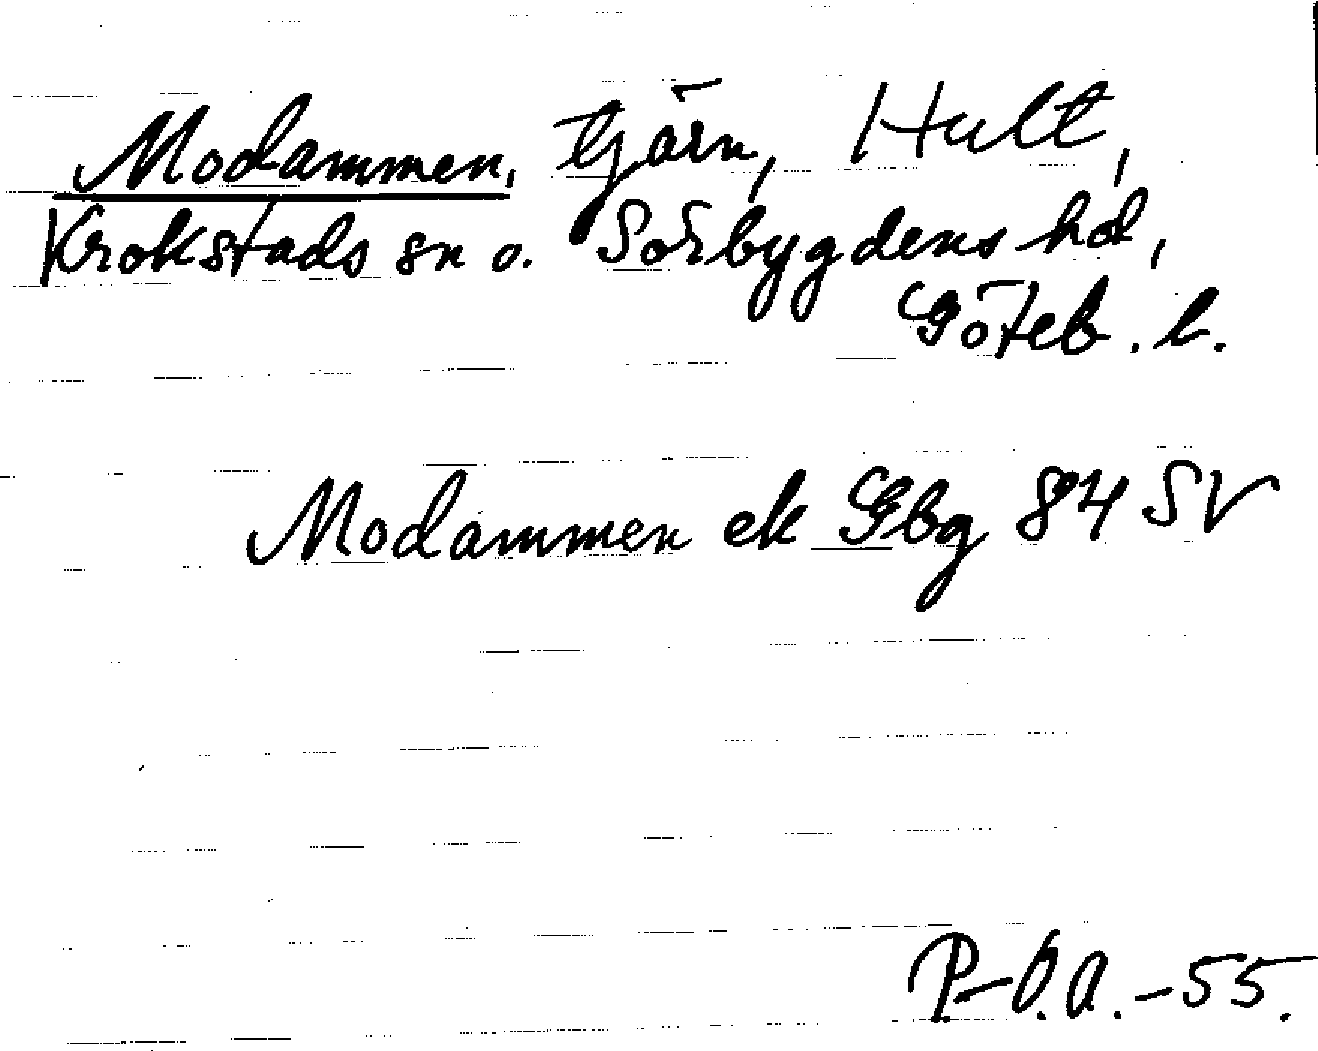 Modammen, tjärn, Hult,
Krokstads sn o. Sörbygdens hd,
Göteb. l.
Modammen ek Gbg 84 SV
P-O.A.-55.